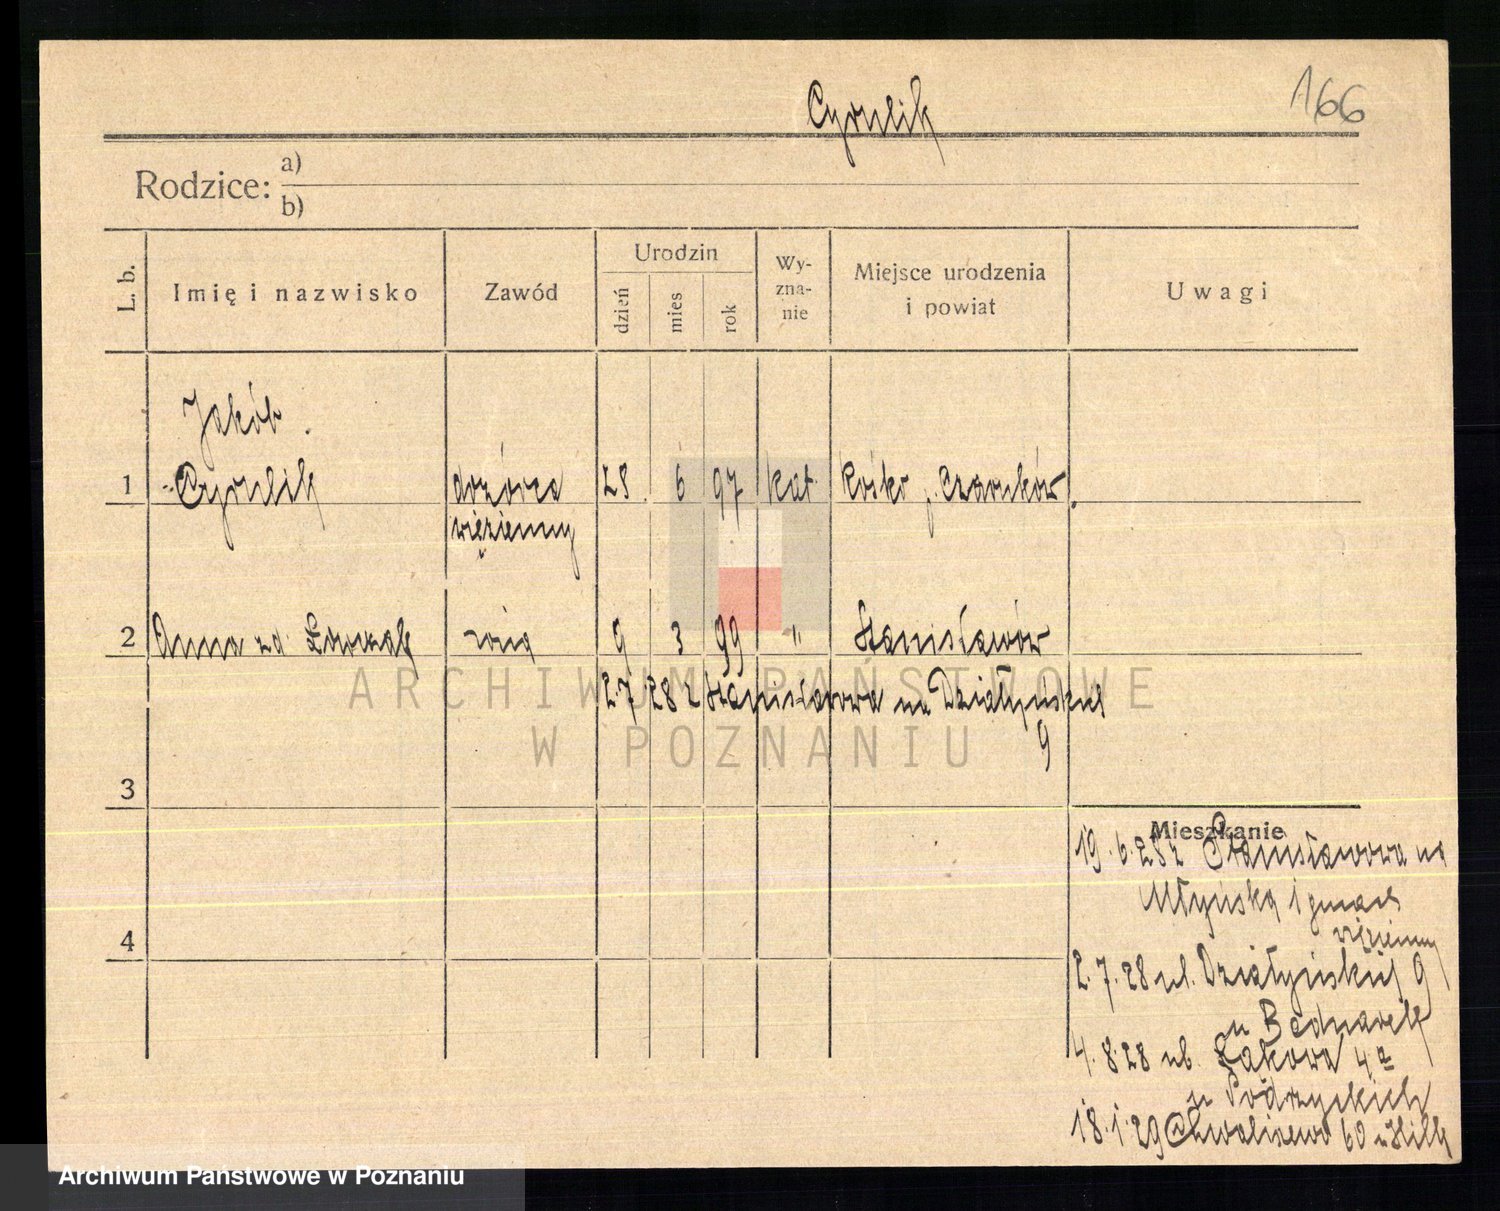 Cyrulik
166
Rodzice: a)
b)
L. b.
Imię i nazwisko
Zawód
Urodzin
dzień
mies
rok
Wy-
zna-
nie
Miejsce urodzenia
i powiat
Uwagi
Jakób
1 Cyrulik dozórca 28. 6 97 kat. Rosko p. Czarnków.
więzienny
2 Anna zd. żona 9 3 99 " Stanisławów
2.7 28 z Stanisławowa na Działyńskich
9
3
Mieszkanie
19.6.28 z Stanisławowa na
Młyńską 1 gmach
więzienny
4
2.7.28 ul. Działyńskich 9
u Bednarek
4.8.28 ul. Łąkowa 4a
u
18.1.29 Chwaliszewo 60
ARCHIWUM PAŃSTWOWE
W POZNANIU
Archiwum Państwowe w Poznaniu